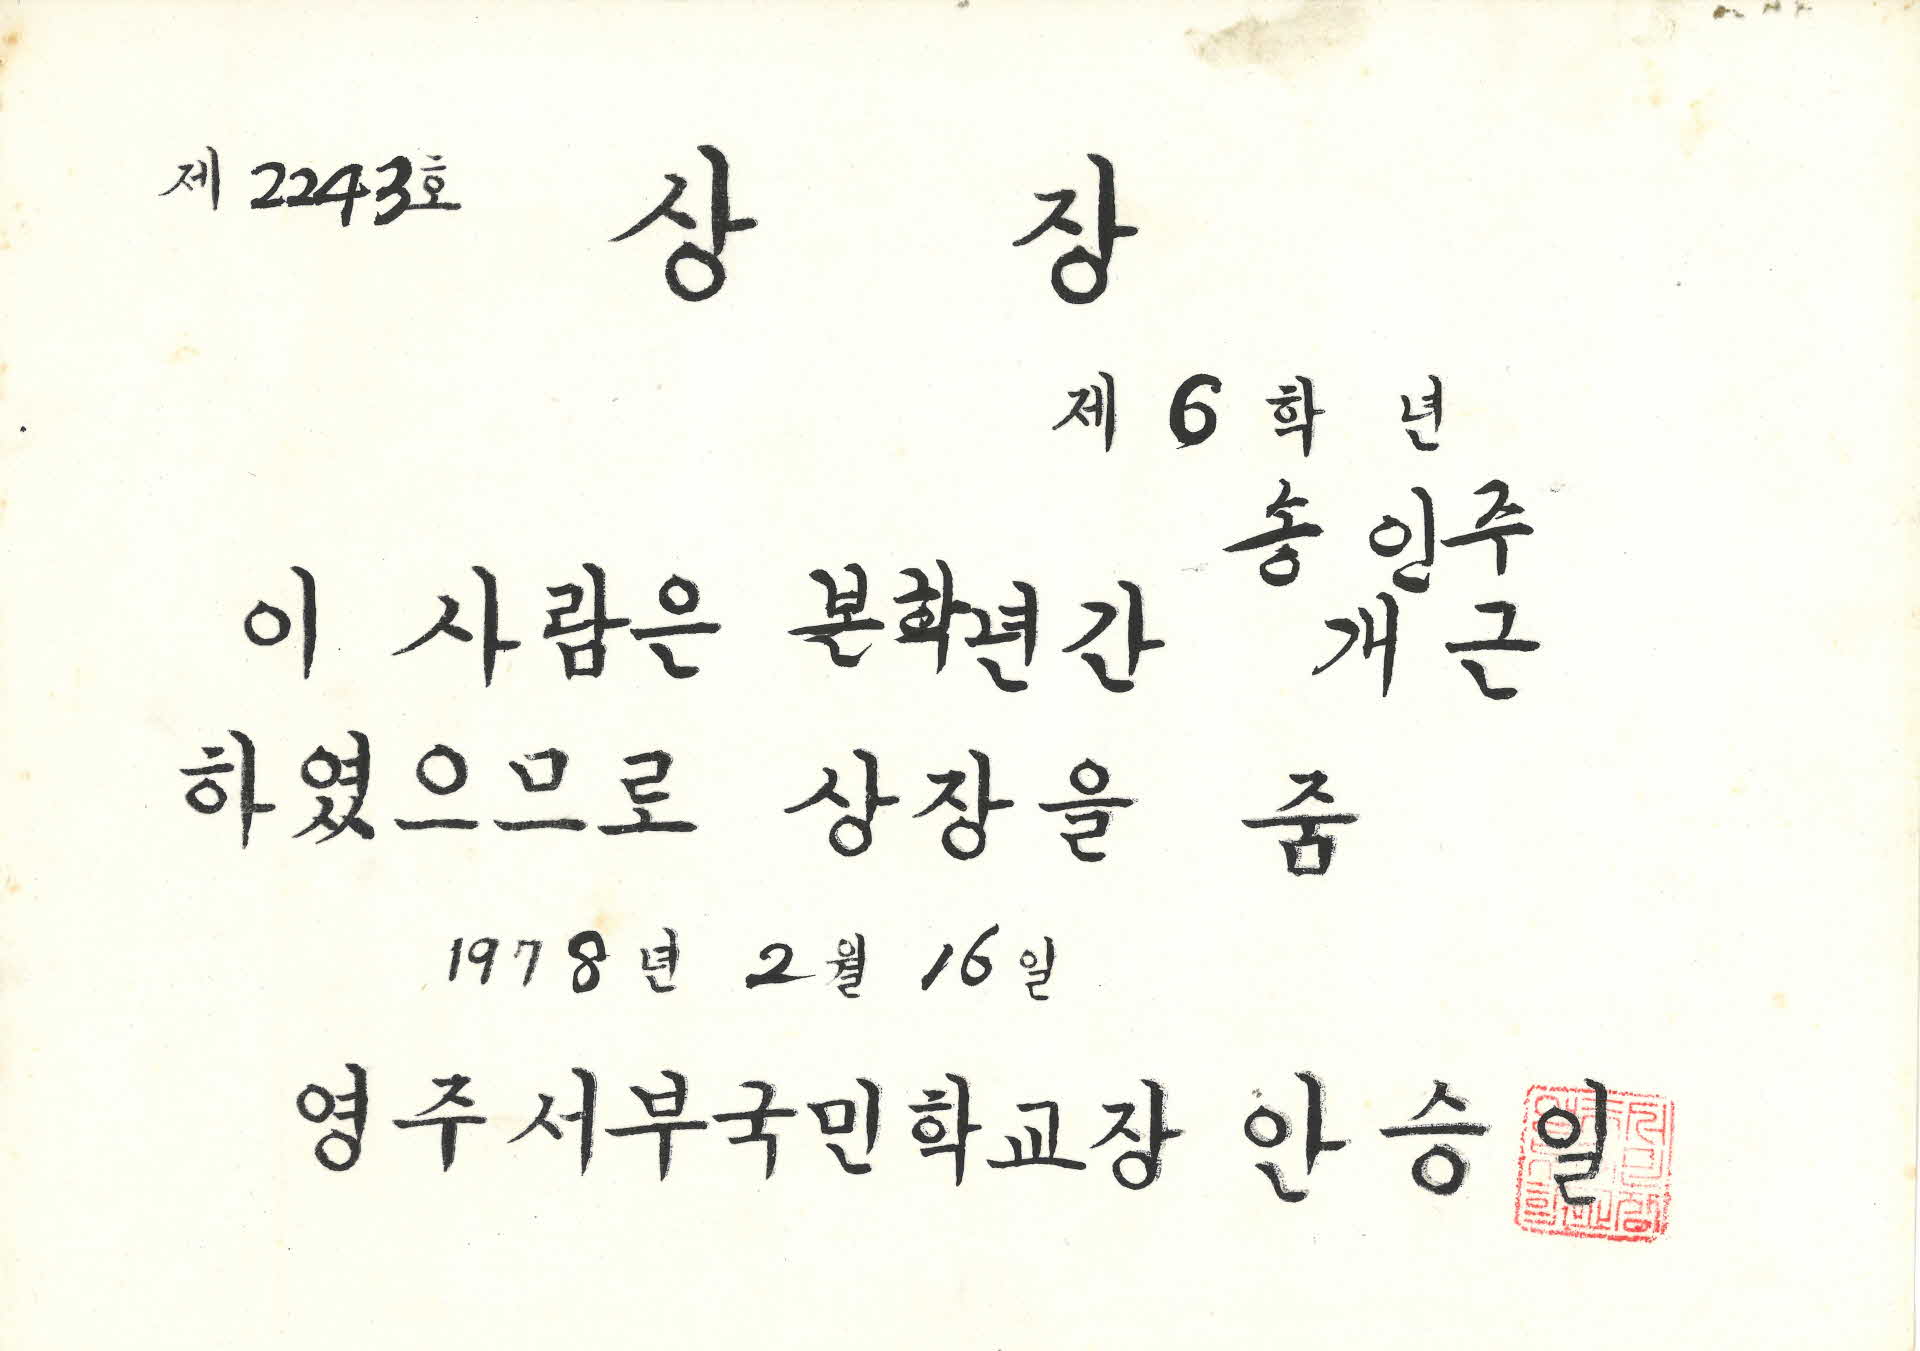 제 2243호
상 장
제 6 학 년
송 인주
이 사람은 본학년간 개근
하였으므로 상장을 줌
1978년 2월 16일
영주서부국민학교장 안승일